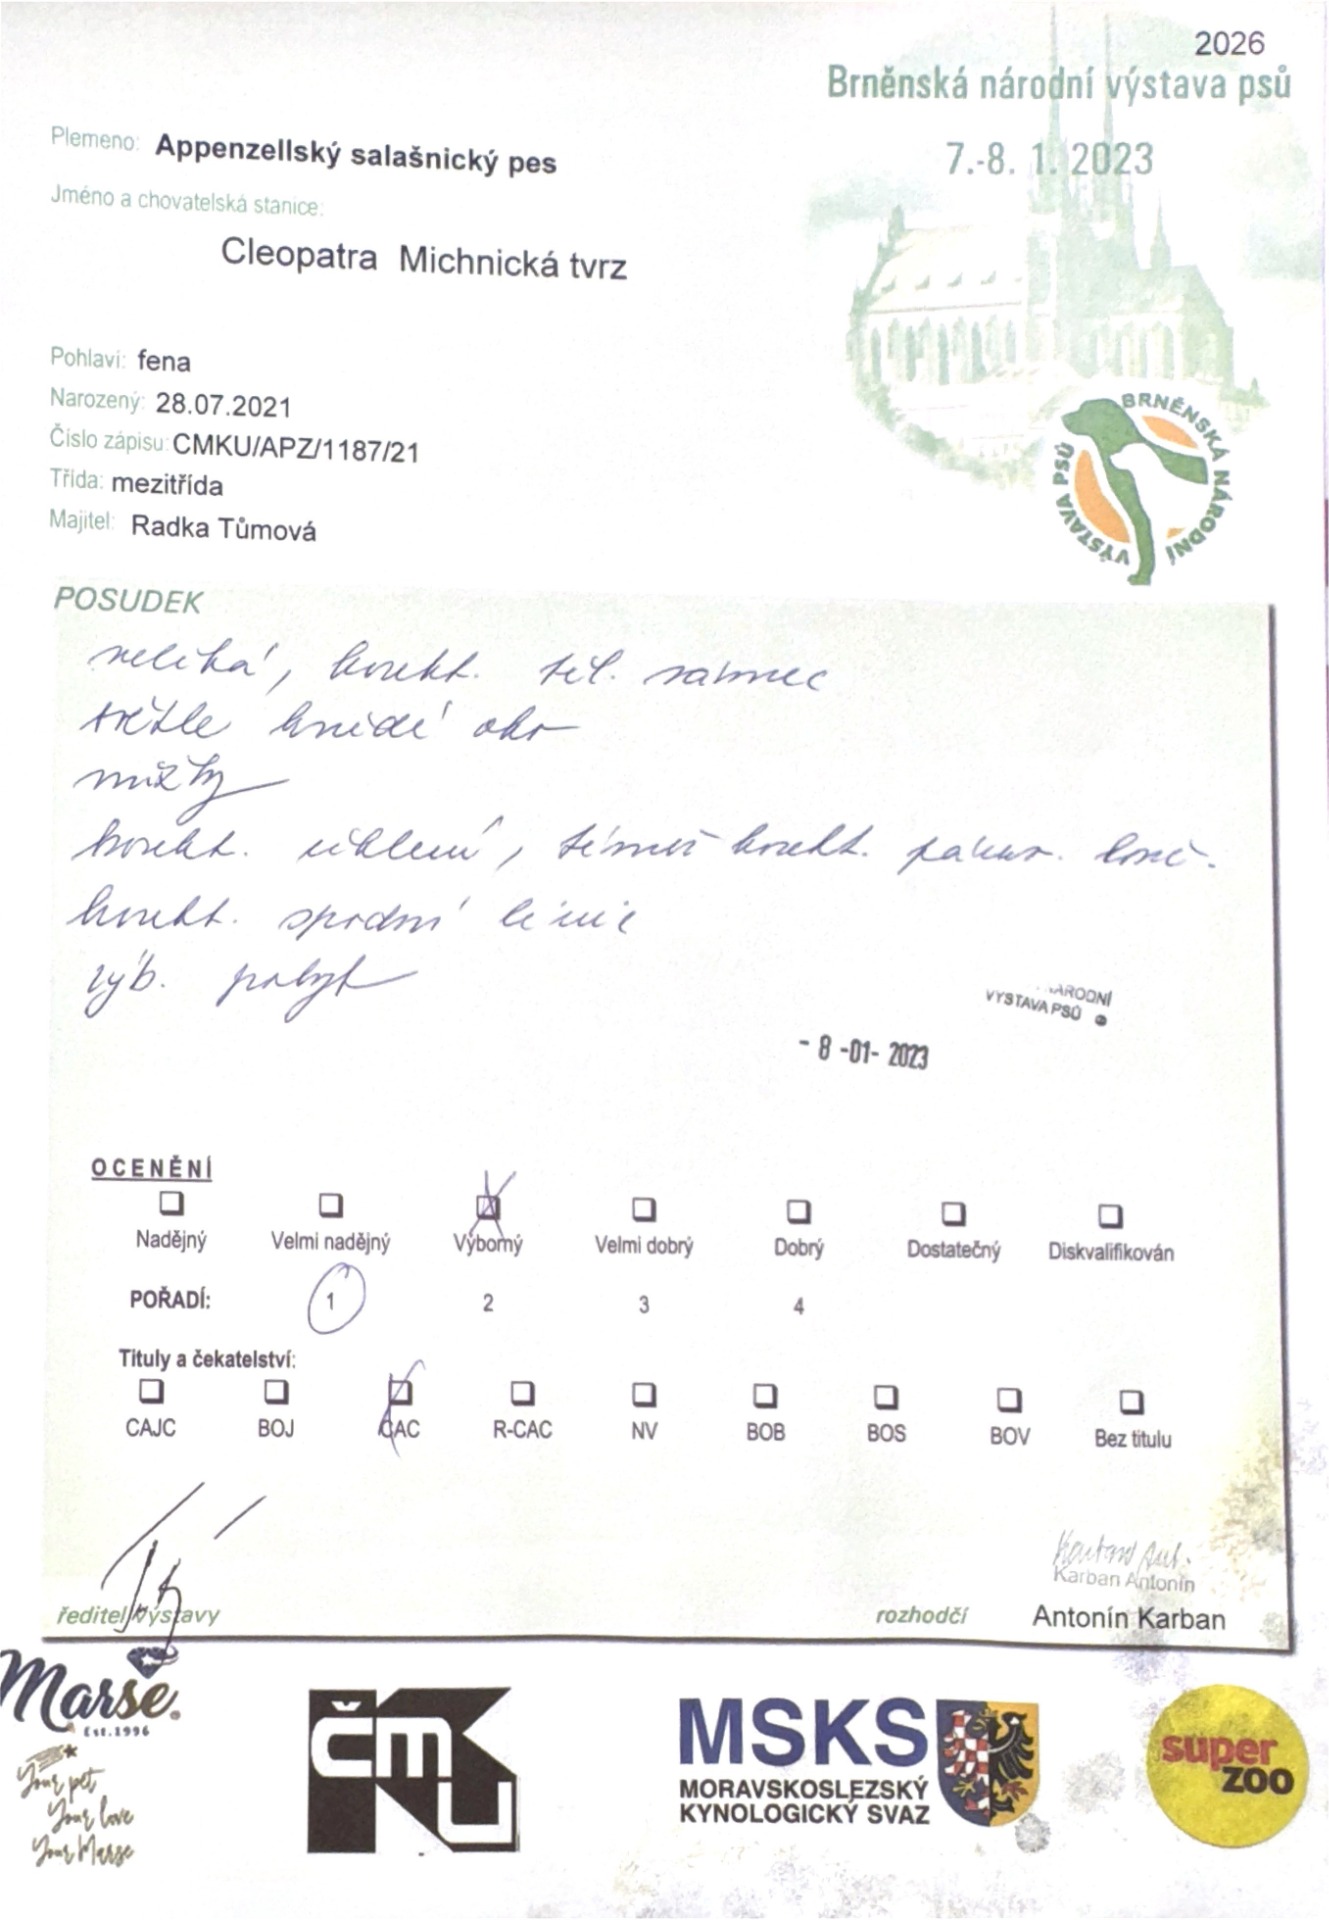 2026
Brněnská národní výstava psů
7.-8. 1. 2023
Plemeno: Appenzellský salašnický pes
Jméno a chovatelská stanice:
Cleopatra Michnická tvrz
Pohlaví: fena
Narozený: 28.07.2021
Číslo zápisu: CMKU/APZ/1187/21
Třída: mezitřída
Majitel: Radka Tůmová
BRNĚNSKÁ NÁRODNÍ VÝSTAVA PSŮ
POSUDEK
veliká, korekt. těl. rámec
světle hnědé oko
nůžky
korekt. úhlení, téměř korekt. konč.
korekt. spodní linie
výb. pohyb
VÝSTAVA PSŮ
- 8 -01- 2023
OCENĚNÍ
Nadějný Velmi nadějný Výborný Velmi dobrý Dobrý Dostatečný Diskvalifikován
POŘADÍ: 1 2 3 4
Tituly a čekatelství:
CAJC BOJ CAC R-CAC NV BOB BOS BOV Bez titulu
Karban Antonín
ředitel výstavy rozhodčí Antonín Karban
Marse
Est.1996
Your pet
Your love
Your Marse
ČMKU
MSKS
MORAVSKOSLEZSKÝ
KYNOLOGICKÝ SVAZ
super
zoo